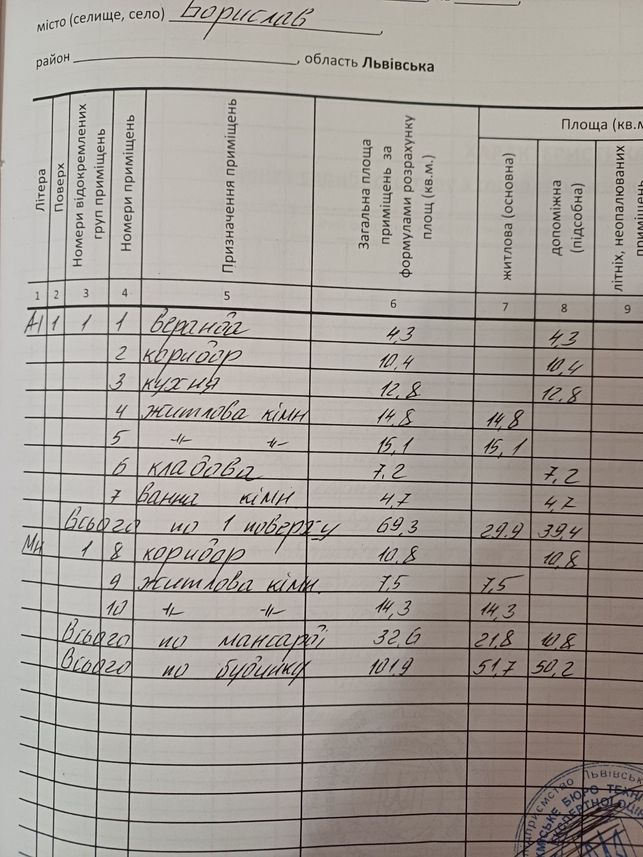 місто (селище, село) Борислав,
район , область Львівська
Літера Поверх Номери відокремлених груп приміщень Номери приміщень Призначення приміщень Загальна площа приміщень за формулами розрахунку площ (кв.м.) Площа (кв.м
житлова (основна) допоміжна (підсобна) літніх, неопалюваних
1 2 3 4 5 6 7 8 9
А1 1 1 1 веранда 4,3 4,3
2 коридор 10,4 10,4
3 кухня 12,8 12,8
4 житлова кімн 14,8 14,8
5 -"- -"- 15,1 15,1
6 кладова 7,2 7,2
7 ванна кімн. 4,7 4,7
Всього по 1 поверху 69,3 29,9 39,4
Мн 1 8 коридор 10,8 10,8
9 житлова кімн. 7,5 7,5
10 -"- -"- 14,3 14,3
Всього по мансарді 32,6 21,8 10,8
Всього по будинку 101,9 51,7 50,2